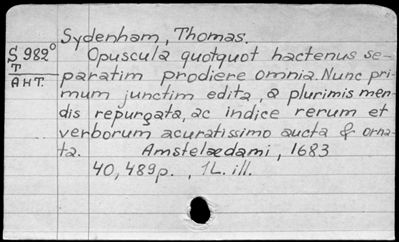 Sydenham, Thomas.
S 982° Opuscula quotquot hactenus se-
T
AHT. paratim prodiere omnia. Nunc pri-
mum junctim edita, a plurimis men-
dis repurgata, ac indice rerum et
verborum acuratissimo aucta & orna-
ta. Amstelaedami, 1683
40, 489p., 1L. ill.